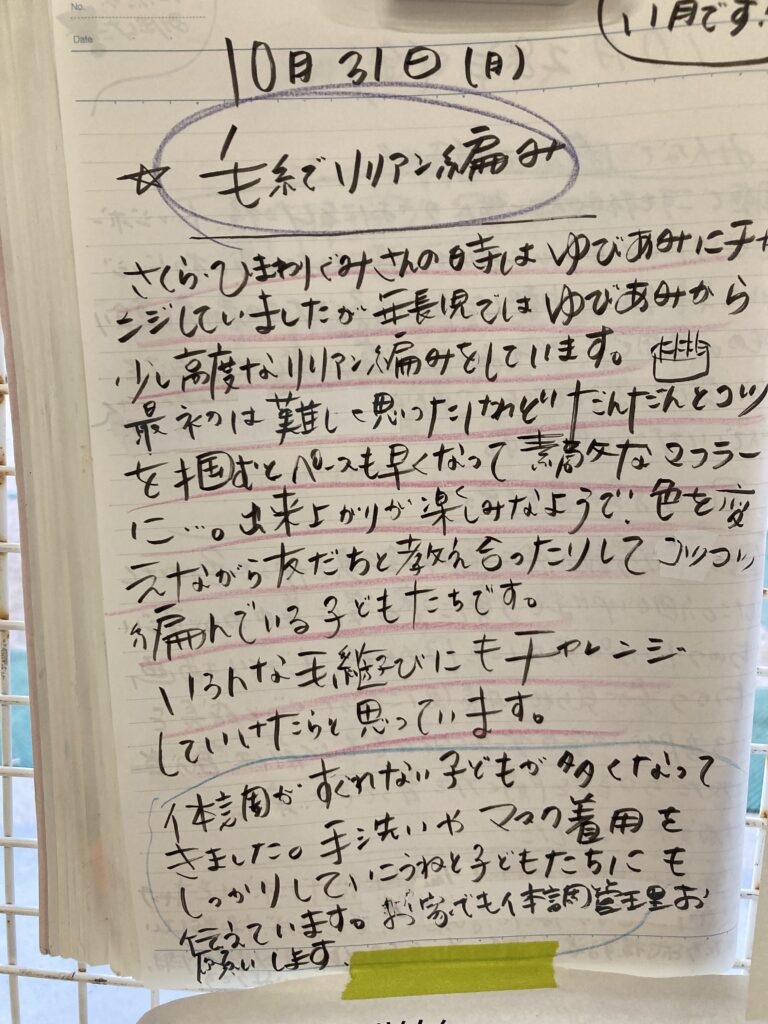 No.
Date
11月です!
10月31日(月)
☆ 毛糸でリリアン編み
さくら・ひまわりぐみさんの時は ゆびあみにチャ
ンジしていましたが 年長児では ゆびあみから
少し高度な リリアン編みをしています。
最初は 難しく思ったけれど だんだんとコツ
を掴むと ペースも早くなって 素敵な マフラー
に…。出来上がりが楽しみなようで! 色を変
えながら友だちと教え合ったりして コツコツ
編んでいる子どもたちです。
いろんな毛糸遊びにもチャレンジ
していけたらと思っています。
体調が すぐれない子どもが 多くなって
きました。手洗いや マスク着用を
しっかりしていこうねと子どもたちにも
伝えています。お家でも体調管理お
願いします.